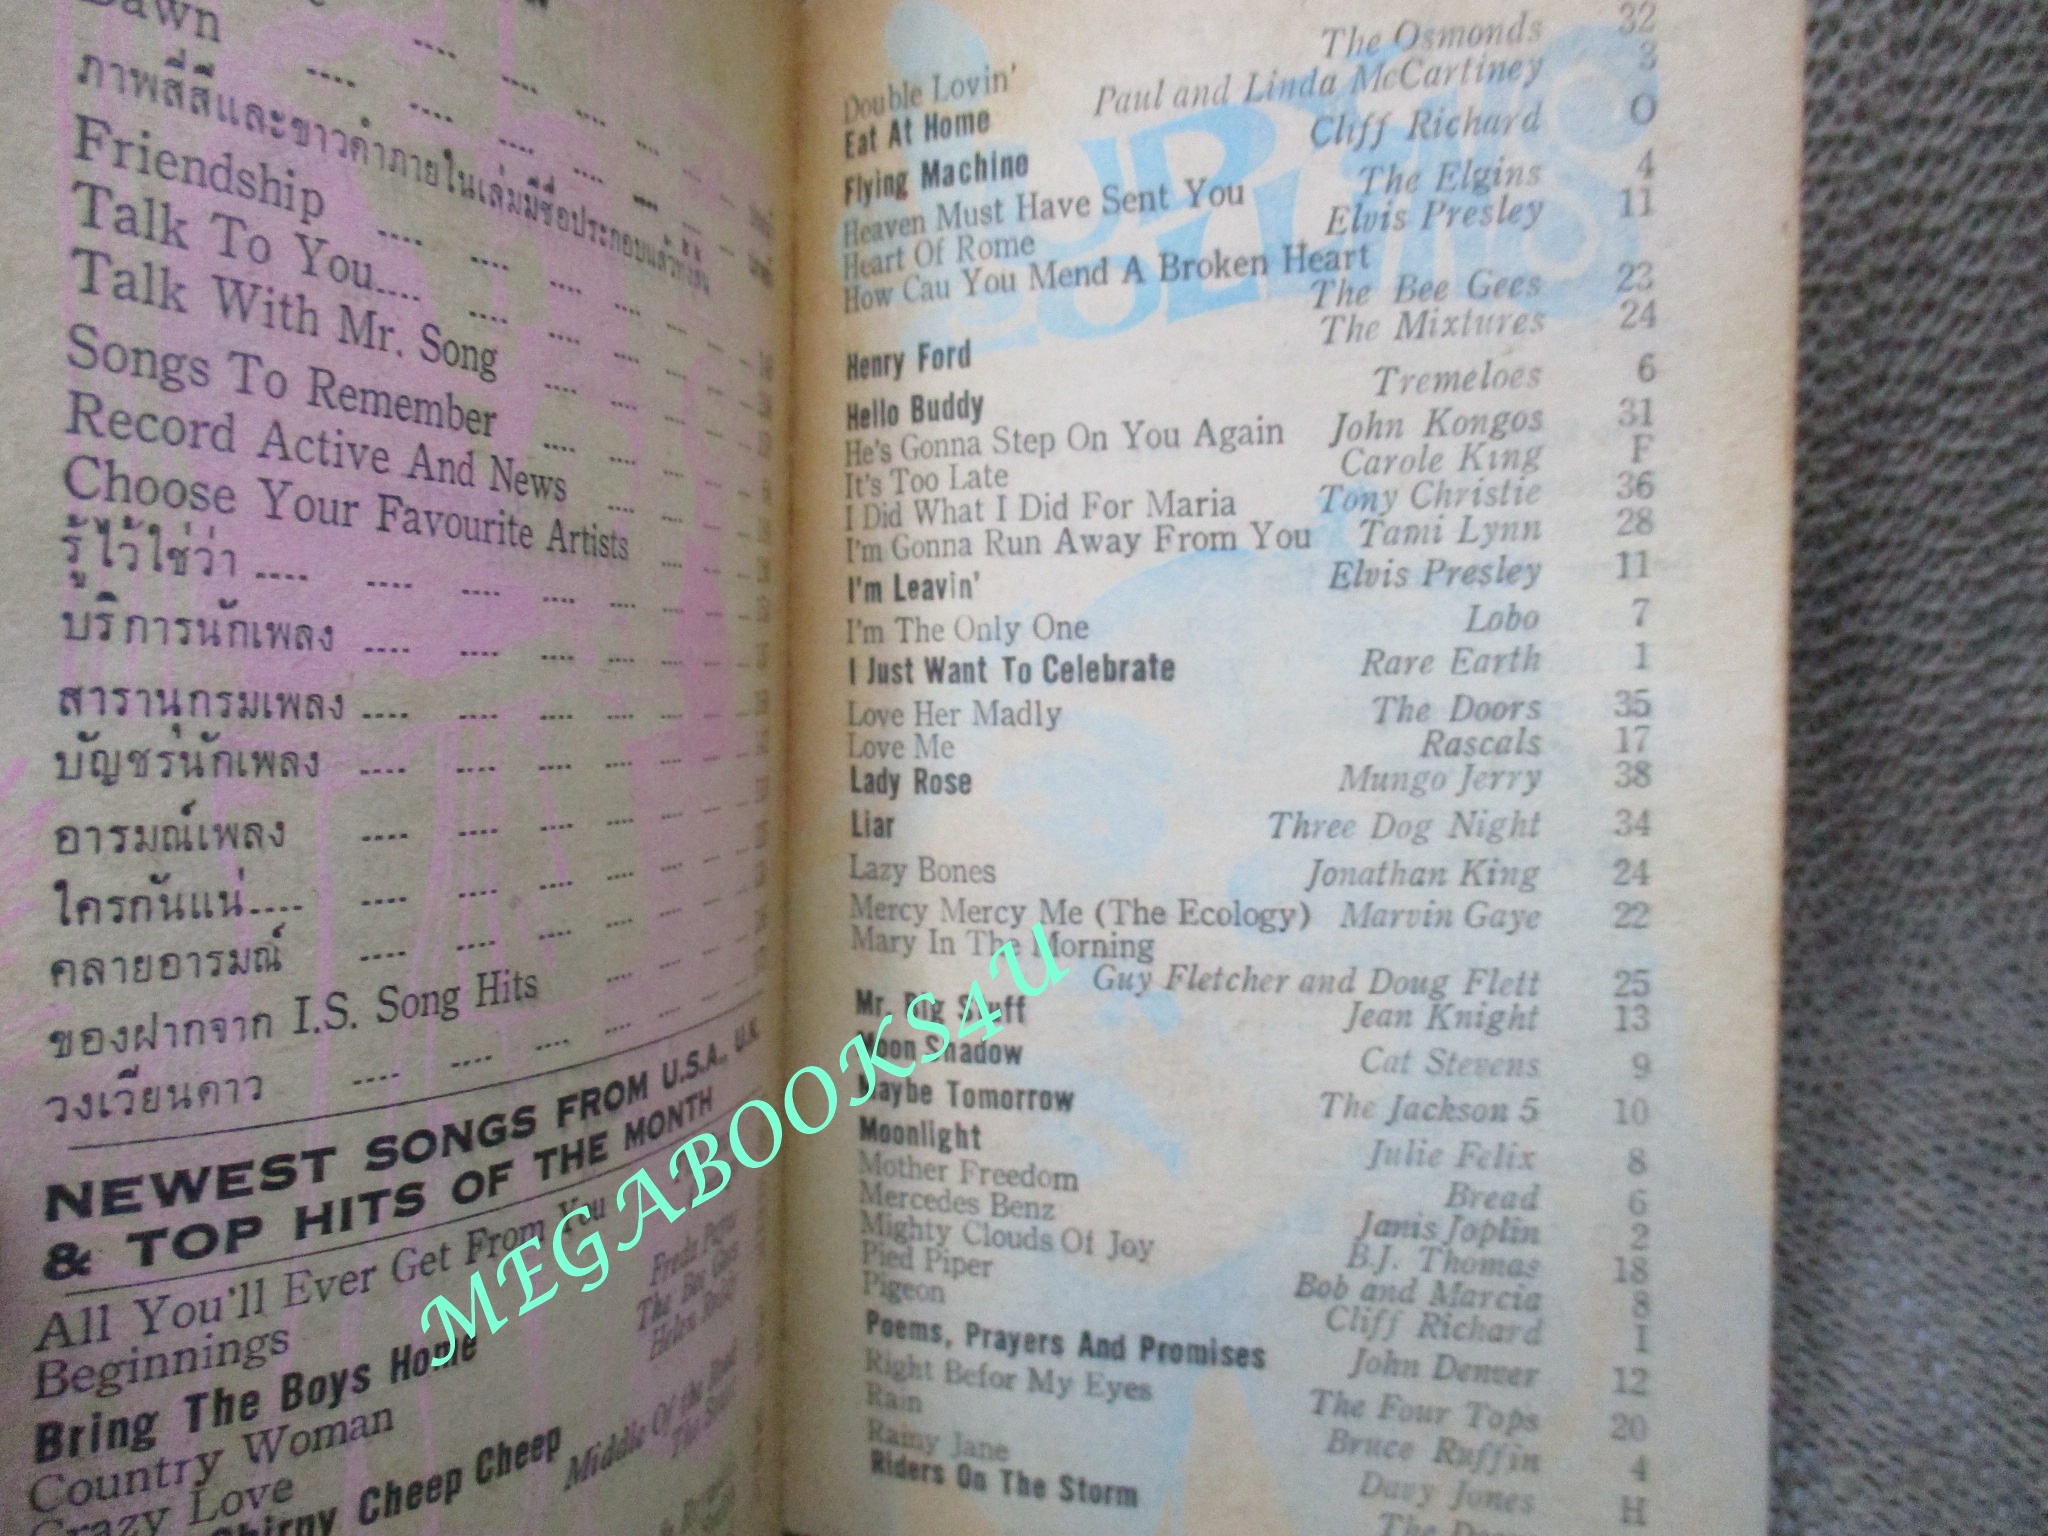 Dawn
ภาพสี่สีและขาวดำภายในเล่มมีชื่อประกอบแล้วทั้งสิ้น
Friendship
Talk To You....
Talk With Mr. Song
Songs To Remember
Record Active And News
Choose Your Favourite Artists
รู้ไว้ใช่ว่า ....
บริการนักเพลง ....
สารานุกรมเพลง ....
บัญชรนักเพลง ....
อารมณ์เพลง ....
ใครกันแน่....
คลายอารมณ์ ....
ของฝากจาก I.S. Song Hits
วงเวียนดาว ....
NEWEST SONGS FROM U.S.A., U.K.
& TOP HITS OF THE MONTH
All You'll Ever Get From You
Beginnings The Bee Gees
Bring The Boys Home
Country Woman
Crazy Love
Chirpy Cheep Cheep Middle Of the Road
The Osmonds 32
Double Lovin'
Paul and Linda McCartiney 3
Eat At Home
Cliff Richard O
Flying Machine
The Elgins 4
Heaven Must Have Sent You
Elvis Presley 11
Heart Of Rome
How Cau You Mend A Broken Heart
The Bee Gees 23
The Mixtures 24
Henry Ford
Tremeloes 6
Hello Buddy
He's Gonna Step On You Again John Kongos 31
It's Too Late Carole King F
I Did What I Did For Maria Tony Christie 36
I'm Gonna Run Away From You Tami Lynn 28
I'm Leavin' Elvis Presley 11
I'm The Only One Lobo 7
I Just Want To Celebrate Rare Earth 1
Love Her Madly The Doors 35
Love Me Rascals 17
Lady Rose Mungo Jerry 38
Liar Three Dog Night 34
Lazy Bones Jonathan King 24
Mercy Mercy Me (The Ecology) Marvin Gaye 22
Mary In The Morning
Guy Fletcher and Doug Flett 25
Mr. Big Stuff Jean Knight 13
Moon Shadow Cat Stevens 9
Maybe Tomorrow The Jackson 5 10
Moonlight Julie Felix 8
Mother Freedom Bread 6
Mercedes Benz Janis Joplin 2
Mighty Clouds Of Joy B.J. Thomas 18
Pied Piper Bob and Marcia 8
Pigeon Cliff Richard I
Poems, Prayers And Promises John Denver 12
Right Befor My Eyes The Four Tops 20
Rain Bruce Ruffin 4
Rainy Jane Davy Jones H
Riders On The Storm
MEGABOOKS4U